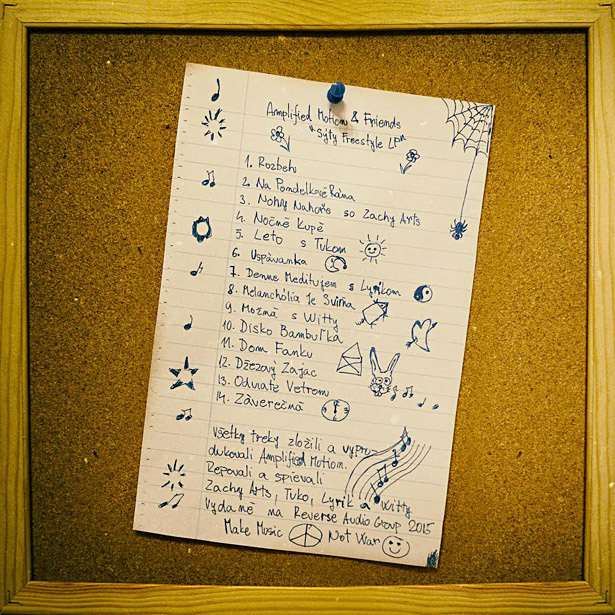 Amplified Motion & Friends
"Sýty Freestyle LP"
1. Rozbeh
2. Na Pondelkové Rána
3. Nohy Nahoře so Zachy Arts
4. Nočné Kupé
5. Leto s Tukom
6. Uspávanka
7. Denne Meditujem s Lyrikom
8. Melanchólia Je Sviňa
9. Možná s Witty
10. Disko Bambuľka
11. Dom Fanku
12. Džezový Zajac
13. Odviate Vetrom
14. Záverečná
Všetky treky zložili a vypro-
dukovali Amplified Motion.
Repovali a spievali
Zachy Arts, Tuko, Lyrik a Witty
Vydané na Reverse Audio Group 2015
Make Music Not War